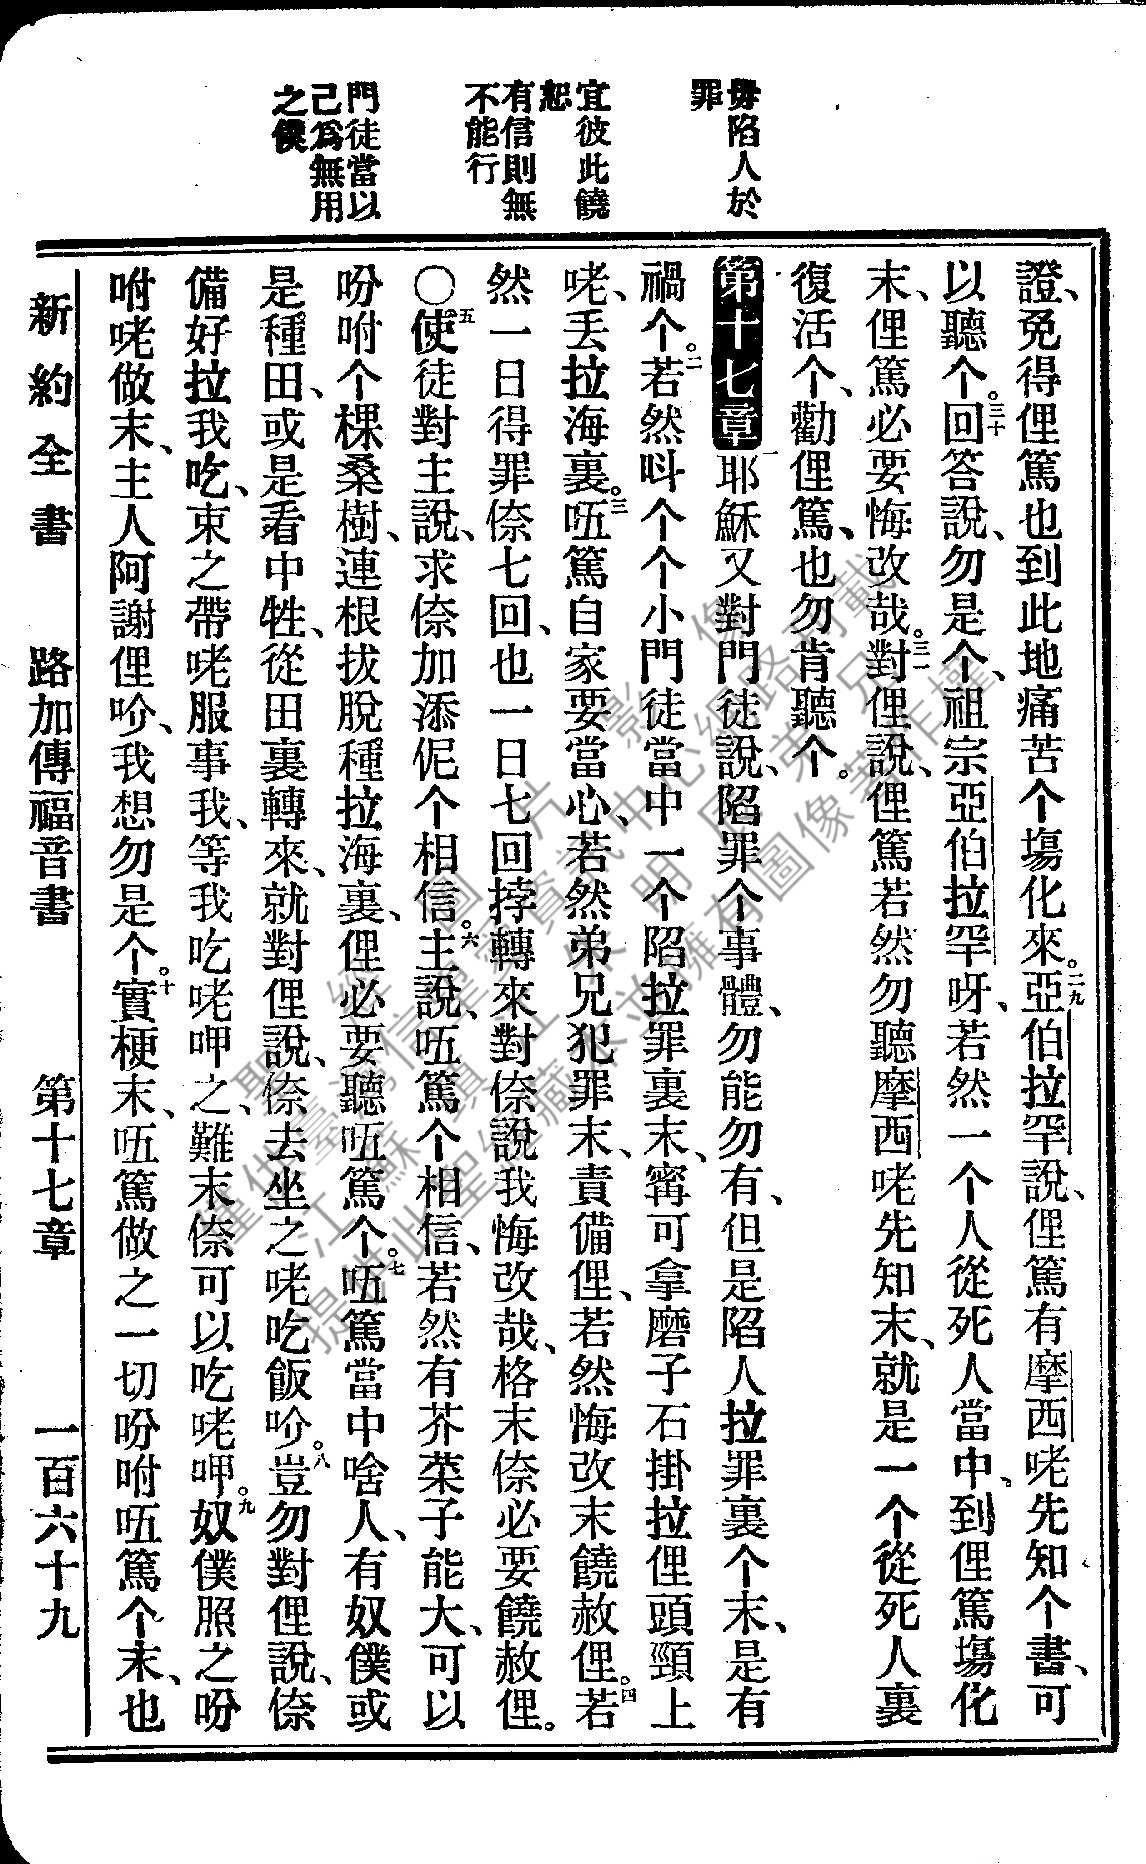 毋陷人於
罪
宜彼此饒
恕
有信則無
不能行
門徒當以
己爲無用
之僕
證、免得俚篤也到此地痛苦个塲化來。二九亞伯拉罕說、俚篤有摩西咾先知个書、可
以聽个。三十回答說、勿是个、祖宗亞伯拉罕呀、若然一个人從死人當中、到俚篤塲化
末、俚篤必要悔改哉。三一對俚說、俚篤若然勿聽摩西咾先知末、就是一个從死人裏
復活个、勸俚篤、也勿肯聽个。
第十七章一耶穌又對門徒說、陷罪个事體、勿能勿有、但是陷人拉罪裏个末、是有
禍个。二若然呌个个小門徒當中一个陷拉罪裏末、寗可拿磨子石掛拉俚頭頸上
咾、丟拉海裏。三㕶篤自家要當心、若然弟兄犯罪末、責備俚、若然悔改末饒赦俚。四若
然一日得罪倷七回、也一日七回挬轉來對倷說我悔改哉、格末倷必要饒赦俚。
〇五使徒對主說、求倷加添伲个相信。六主說、㕶篤个相信、若然有芥菜子能大、可以
吩咐个棵桑樹、連根拔脫種拉海裏、俚必要聽㕶篤个。七㕶篤當中啥人、有奴僕或
是種田、或是看中牲、從田裏轉來、就對俚說、倷去坐之咾吃飯吤。八豈勿對俚說、倷
備好拉我吃、束之帶咾服事我、等我吃咾呷之、難末倷可以吃咾呷。九奴僕照之吩
咐咾做末、主人阿謝俚吤、我想勿是个。十實梗末、㕶篤做之一切吩咐㕶篤个末、也
新約全書　路加傳福音書　第十七章　一百六十九
聖經圖片影像
僅供臺灣信望愛資訊中心網路刊載
江蘇鎮江朱明民弟兄
提供此聖經藏本並擁有圖像著作權